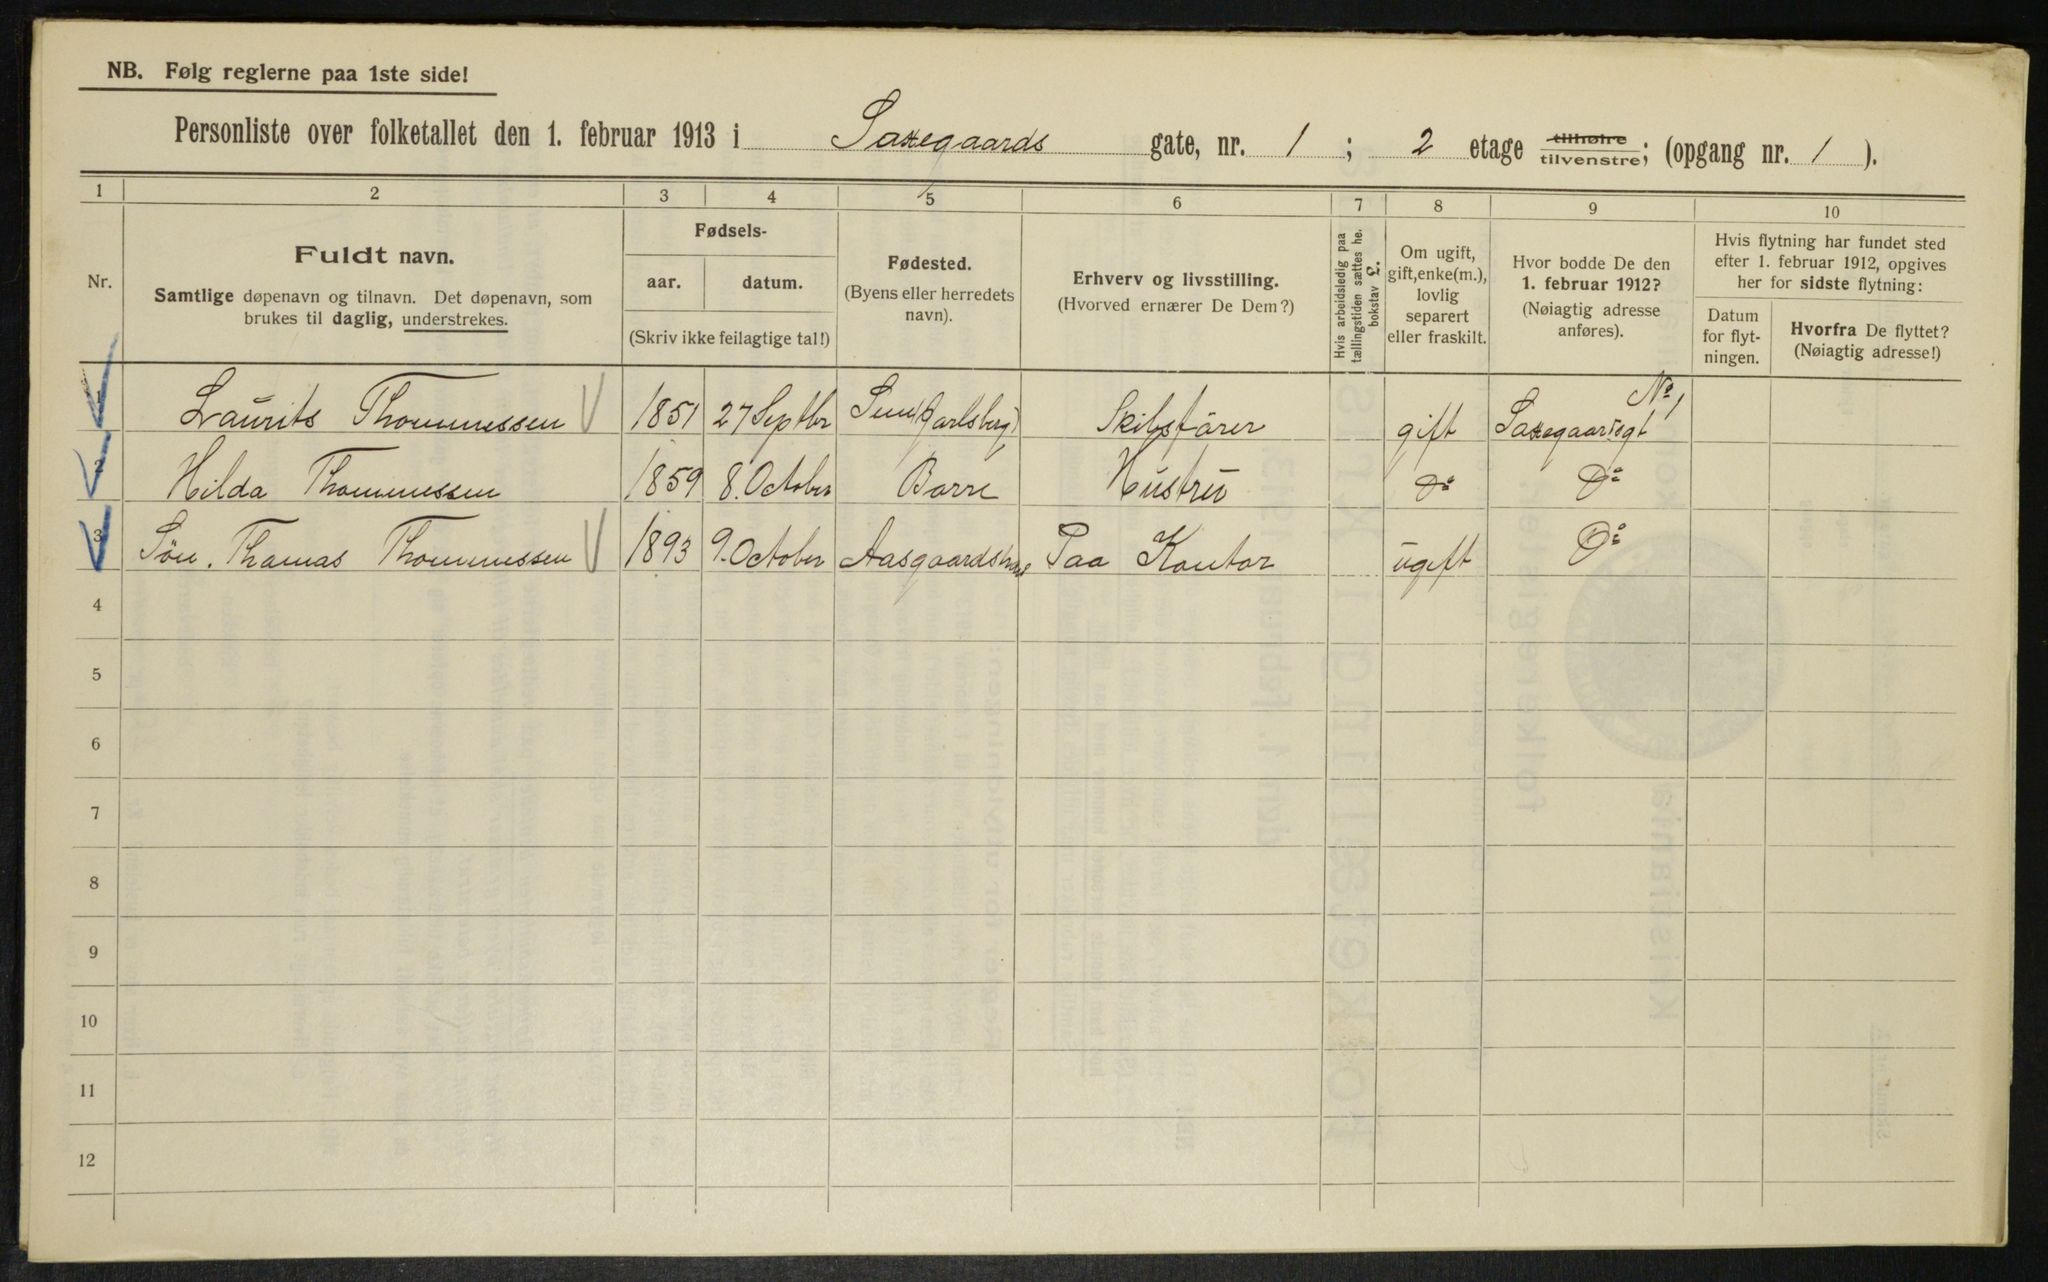 NB. Følg reglerne paa 1ste side!
Personliste over folketallet den 1. februar 1913 i Saxegaards gate, nr. 1; 2 etage tilhøire tilvenstre; (opgang nr. 1).
1 2 3 4 5 6 7 8 9 10
Nr.
Fuldt navn.
Samtlige døpenavn og tilnavn. Det døpenavn, som
brukes til daglig, understrekes.
Fødsels-
aar. datum.
(Skriv ikke feilagtige tal!)
Fødested.
(Byens eller herredets
navn).
Erhverv og livsstilling.
(Hvorved ernærer De Dem?)
Hvis arbeidsledig paa
tællingstiden sættes he.
bokstav L.
Om ugift,
gift, enke(m.),
lovlig
separert
eller fraskilt.
Hvor bodde De den
1. februar 1912?
(Nøiagtig adresse
anføres).
Hvis flytning har fundet sted
efter 1. februar 1912, opgives
her for sidste flytning:
Datum
for flyt-
ningen.
Hvorfra De flyttet?
(Nøiagtig adresse!)
1 Laurits Thommessen 1851 27 Septbr Sem (Jarlsberg) Skibsfører gift Saxegaardsgt No 1
2 Hilda Thommessen 1859 8. October Borre Hustru Do Do
3 Søn. Thomas Thommessen 1893 9. October Aasgaardstrand Paa Kontor ugift Do
4
5
6
7
8
9
10
11
12